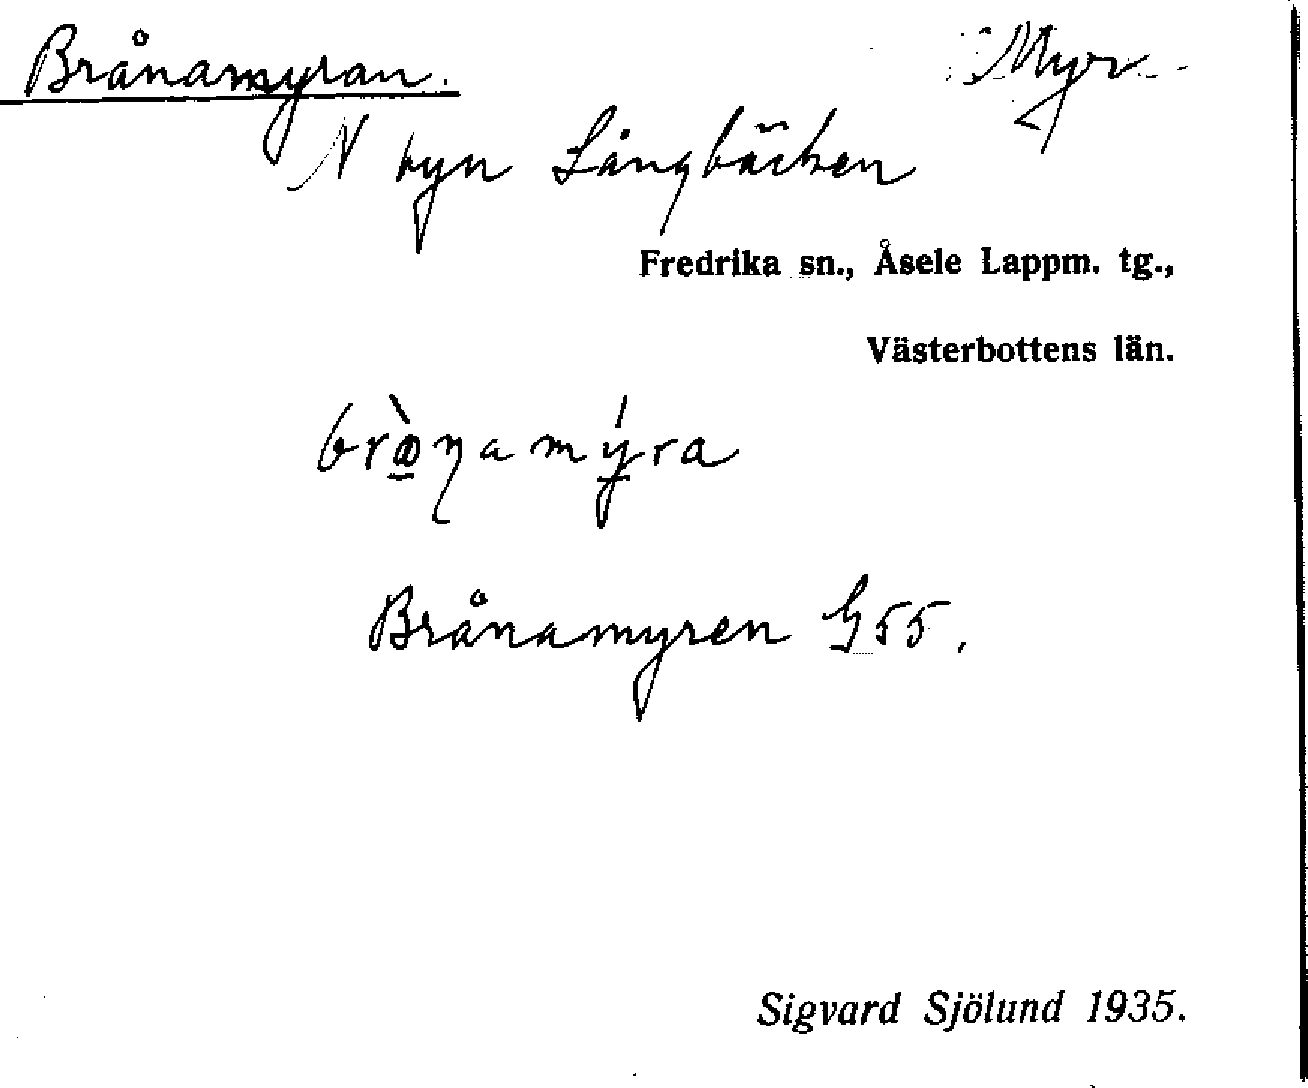 Brånamyran. Myr
N byn Långbäcken
Fredrika sn., Åsele Lappm. tg.,
Västerbottens län.
brò̱ŋamý̱ra
Brånamyren G 55.
Sigvard Sjölund 1935.